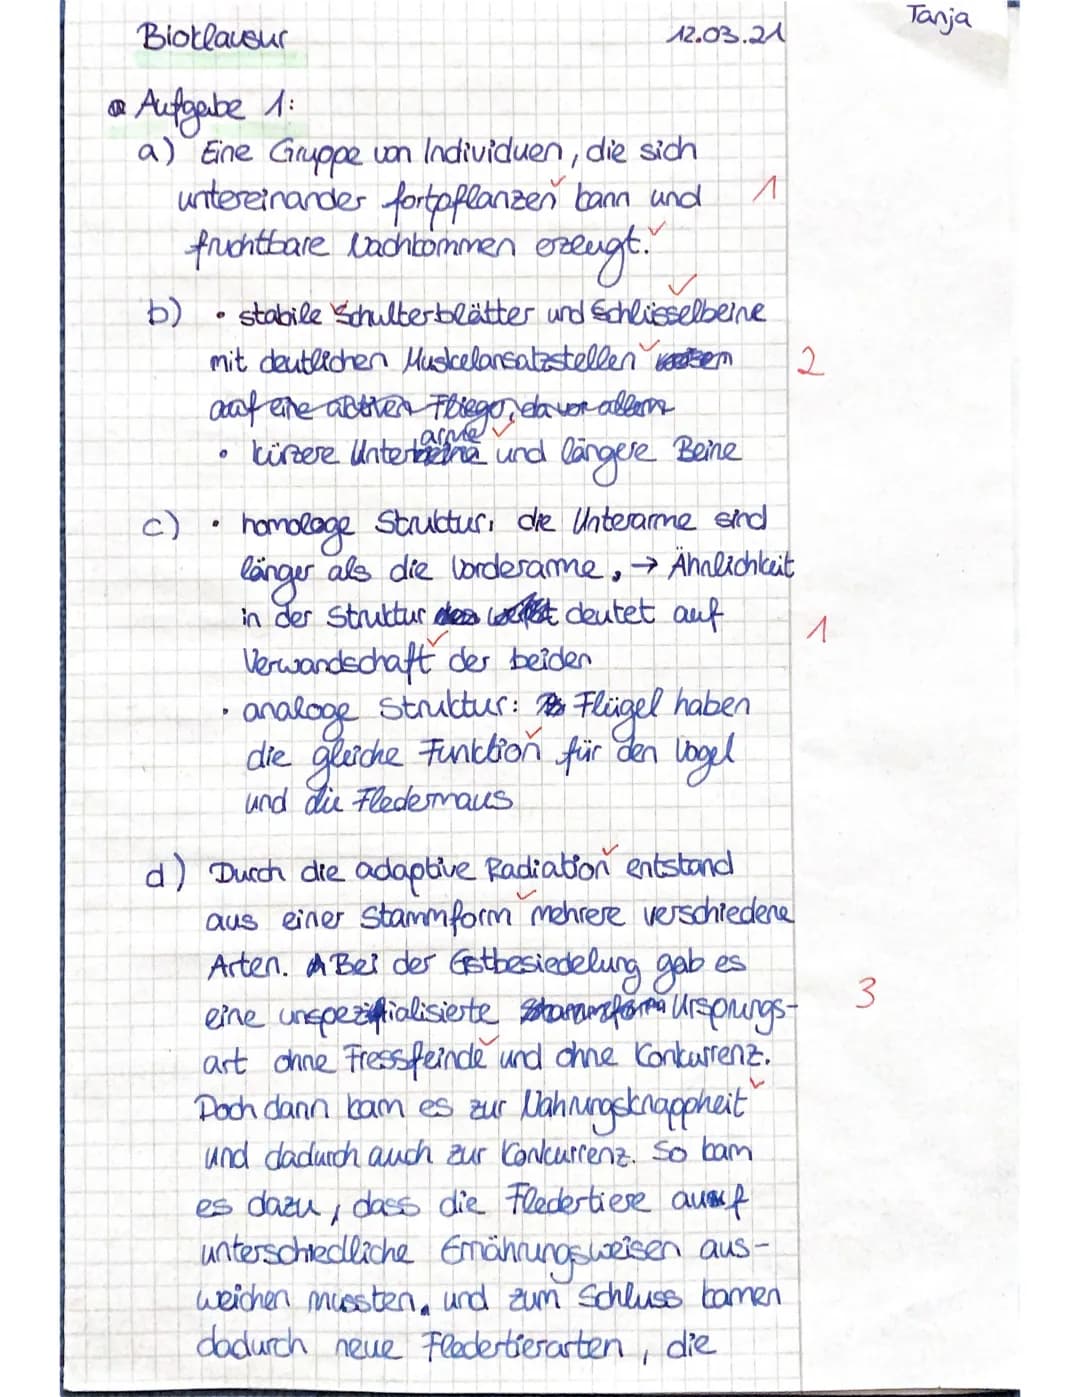 Tanja
Bioklausur 12.03.21
Aufgabe 1:
a) Eine Gruppe von Individuen, die sich
untereinander fortpflanzen kann und 1
fruchtbare Nachkommen erzeugt.
b) • stabile Schulterblätter und Schlüsselbeine
mit deutlichen Muskelansatzstellen 2
auf eine aktiven Flieger, da vor allem
arme
• kürzere Unter und längere Beine
c) • homologe Struktur: die Unterarme sind
länger als die Vorderarme, → Ähnlichkeit
in der Struktur deutet auf 1
Verwandschaft der beiden
• analoge Struktur: Flügel haben
die gleiche Funktion für den Vogel
und die Fledermaus
d) Durch die adaptive Radiation entstand
aus einer Stammform mehrere verschiedene
Arten. Bei der Erstbesiedelung gab es
eine unspezifialisierte Stammform Ursprungs- 3
art ohne Fressfeinde und ohne Konkurrenz.
Doch dann kam es zur Nahrungsknappheit
und dadurch auch zur Konkurrenz. So kam
es dazu, dass die Fledertiere auf
unterschiedliche Ernährungsweisen aus-
weichen mussten, und zum Schluss kamen
dadurch neue Fledertierarten, die